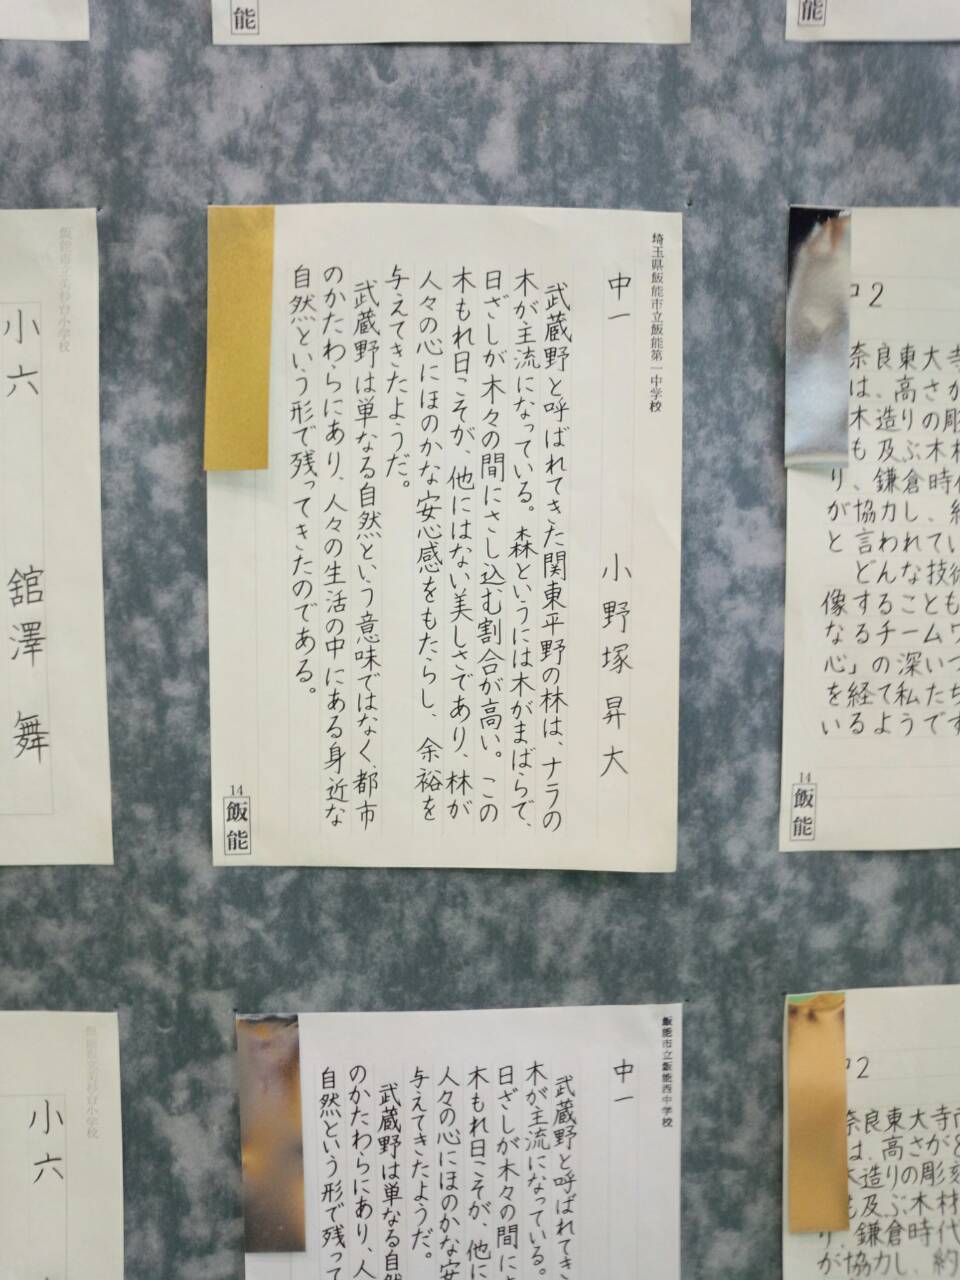 能
能
飯能市立美杉台小学校
小六
舘澤舞
埼玉県飯能市立飯能第一中学校
中一
小野塚昇大
武蔵野と呼ばれてきた関東平野の林は、ナラの
木が主流になっている。森というには木がまばらで、
日ざしが木々の間にさし込む割合が高い。この
木もれ日こそが、他にはない美しさであり、林が
人々の心にほのかな安心感をもたらし、余裕を
与えてきたようだ。
武蔵野は単なる自然という意味ではなく、都市
のかたわらにあり、人々の生活の中にある身近な
自然という形で残ってきたのである。
14
飯能
2
奈良東大寺
は、高さが
木造りの彫
も及ぶ木材
り、鎌倉時代
が協力し、
と言われてい
どんな技術
像することも
なるチームワ
心」の深いつ
を経て私たち
いるようです
14
飯能
小六
飯能市立飯能西中学校
中一
武蔵野と呼ばれてき
木が主流になっている。
日ざしが木々の間に
木もれ日こそが、他に
人々の心にほのかな安
与えてきたようだ。
武蔵野は単なる自然
のかたわらにあり、人
自然という形で残って
2
奈良東大寺
は、高さが8
木造りの彫刻
も及ぶ木材
り、鎌倉時代
が協力し、約